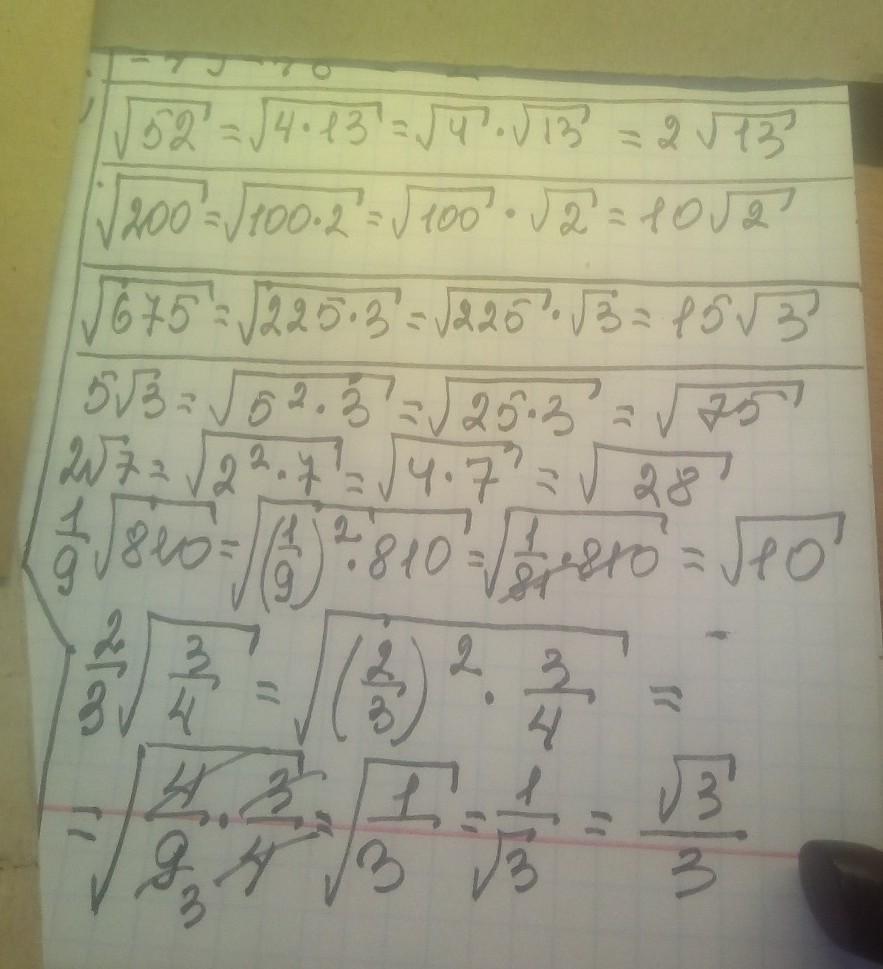 √52 = √4·13 = √4 · √13 = 2√13
√200 = √100·2 = √100 · √2 = 10√2
√675 = √225·3 = √225 · √3 = 15√3
5√3 = √5²·3 = √25·3 = √75
2√7 = √2²·7 = √4·7 = √28
1/9 √810 = √(1/9)²·810 = √1/81·810 = √10
2/3 √3/4 = √(2/3)² · 3/4 =
= √4/9 3 · 3/4 = √1/3 = 1/√3 = √3/3